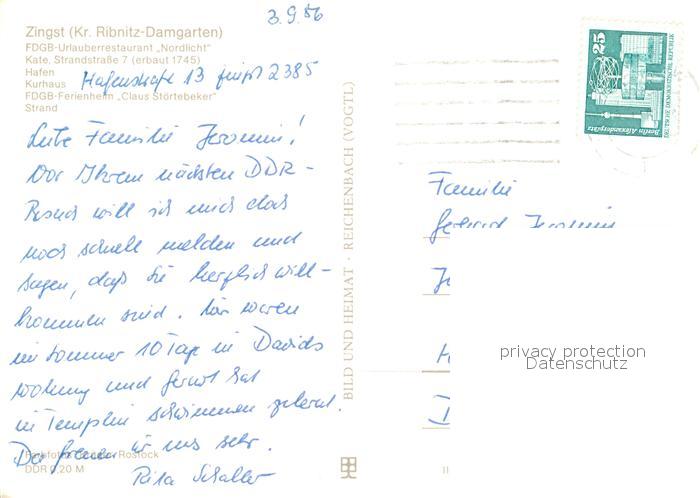 3.9.86
Zingst (Kr. Ribnitz-Damgarten)
FDGB-Urlauberrestaurant „Nordlicht"
Kate, Strandstraße 7 (erbaut 1745)
Hafen
Kurhaus
FDGB-Ferienheim „Claus Störtebeker"
Strand
Hafenstraße 13 2385
Liebe Familie Jeromin!
Vor Ihrem nächsten DDR-
Besuch will ich mich doch
noch schnell melden und
sagen, daß Sie herzlich will-
kommen sind. Wir waren
im Sommer 10 Tage in Davids
Wohnung und hat
in Templin schwimmen gelernt.
Da freuen wir uns sehr.
Rita Schaller
Rostock
DDR 0,20 M
BILD UND HEIMAT · REICHENBACH (VOGTL)
25
Berlin, Alexanderplatz
DEUTSCHE DEMOKRATISCHE REPUBLIK
Familie
Jeromin
privacy protection
Datenschutz